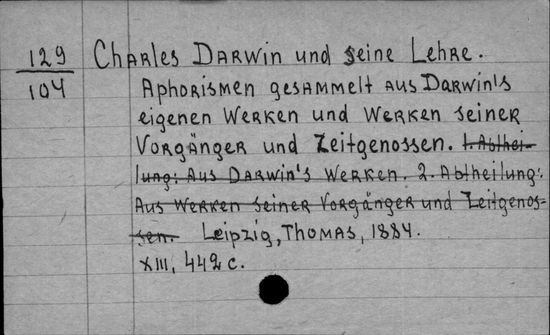 129 Charles Darwin und seine Lehre.
104 Aphorismen gesammelt aus Darwin's
eigenen Werken und Werken seiner
Vorgänger und Zeitgenossen. 1. Abthei-
lung: Aus Darwin's Werken. 2. Abtheilung:
Aus Werken seiner Vorgänger und Zeitgenos-
sen. Leipzig, Thomas, 1884.
XIII, 442 c.